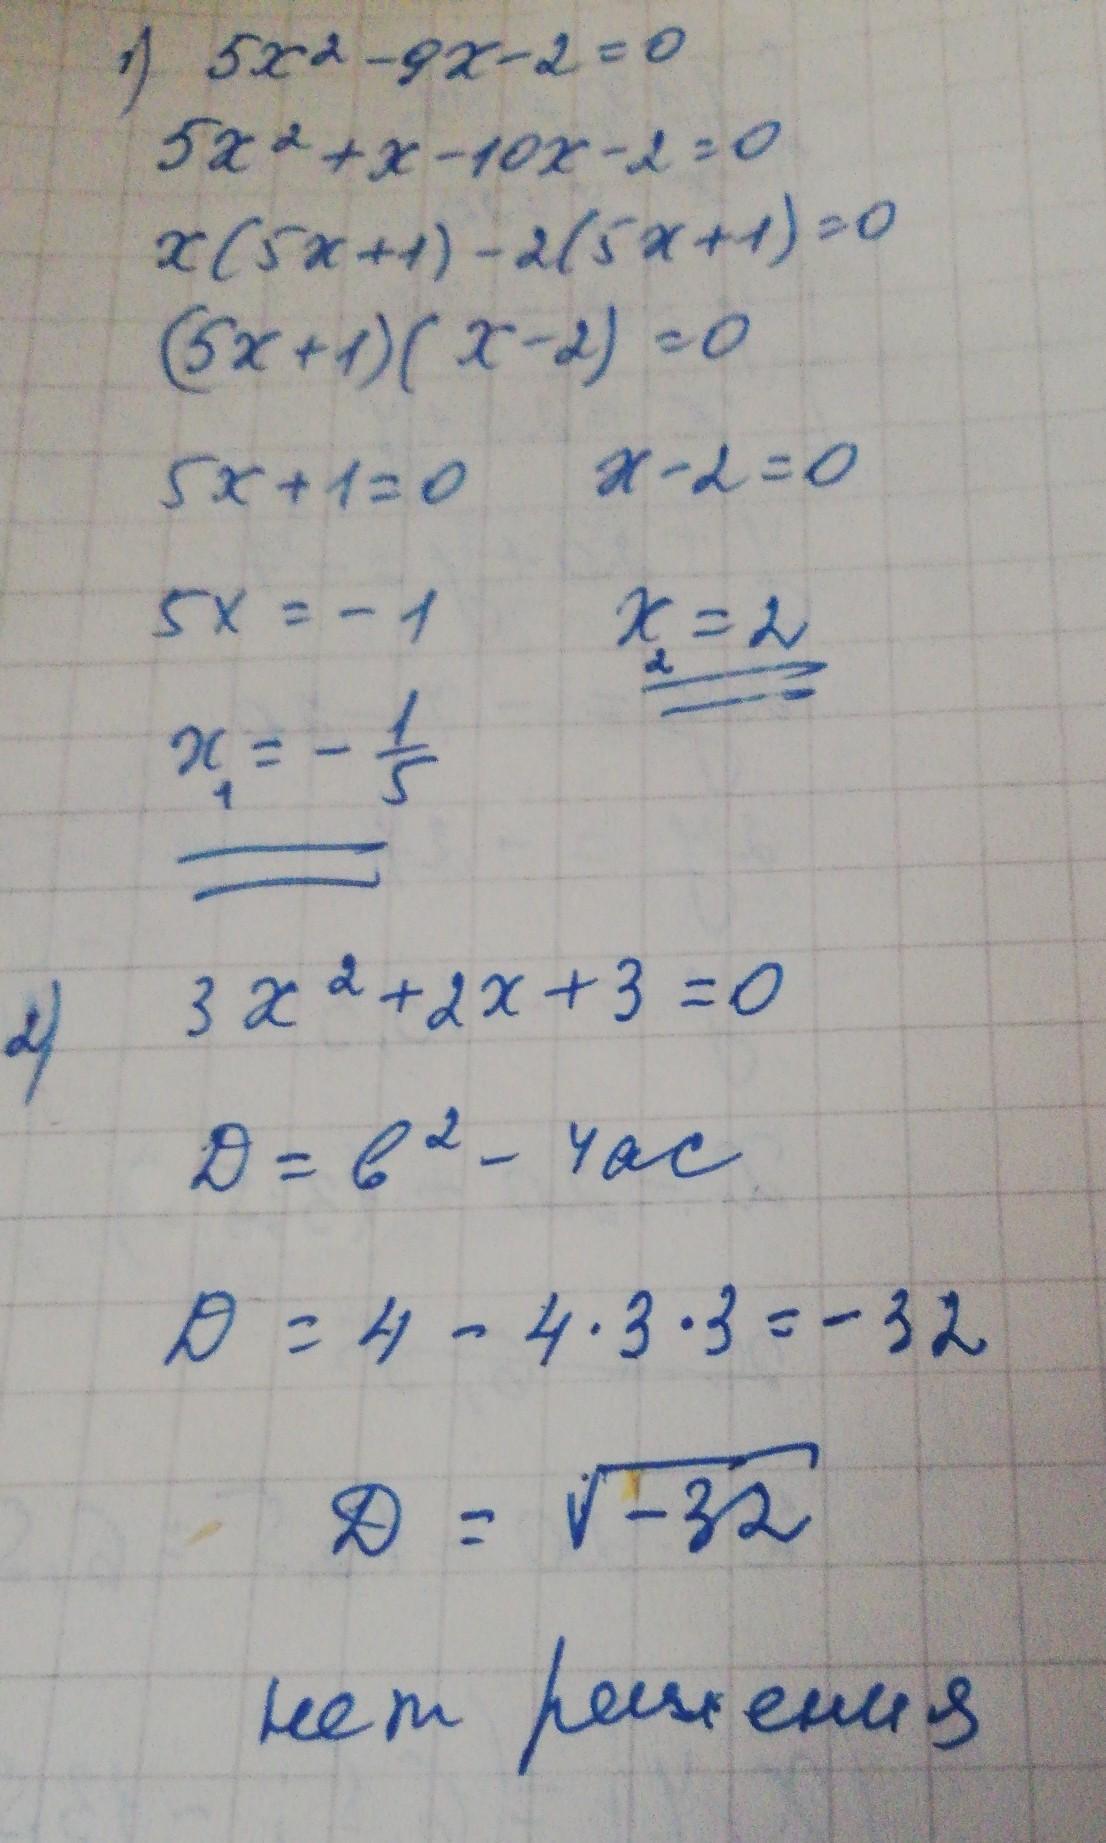 1) 5x² - 9x - 2 = 0
5x² + x - 10x - 2 = 0
x(5x+1) - 2(5x+1) = 0
(5x+1)(x-2) = 0
5x + 1 = 0 x - 2 = 0
5x = -1 x₂ = 2
x₁ = - 1/5
2) 3x² + 2x + 3 = 0
D = b² - 4ac
D = 4 - 4·3·3 = -32
D = √-32
нет решения